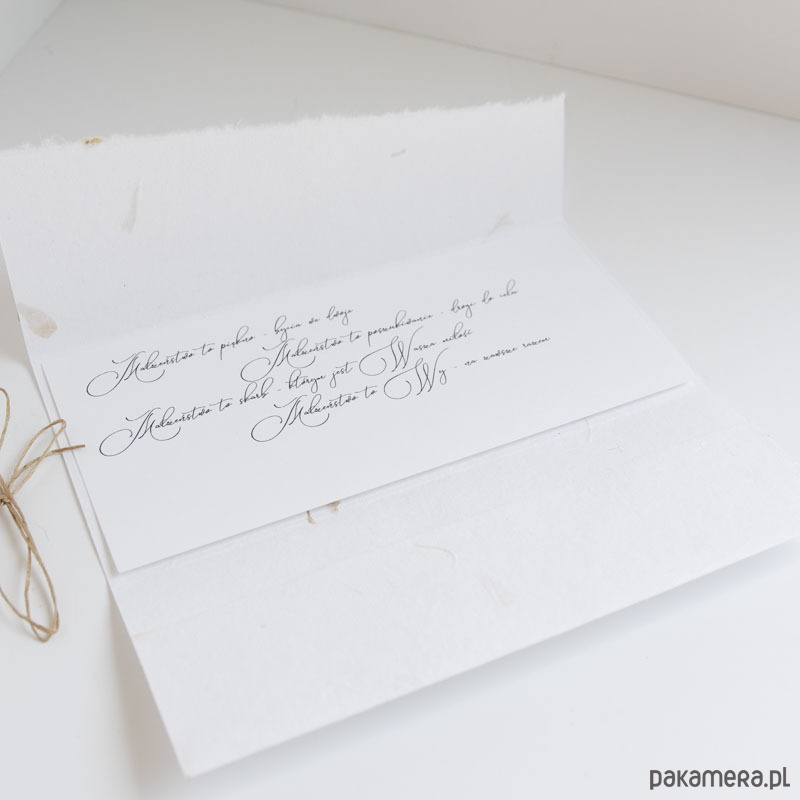 Małżeństwo to piękno - bycia we dwoje
Małżeństwo to poszukiwanie - drogi do celu
Małżeństwo to skarb - którym jest Wasza miłość
Małżeństwo to Wy - na zawsze razem
pakamera.pl